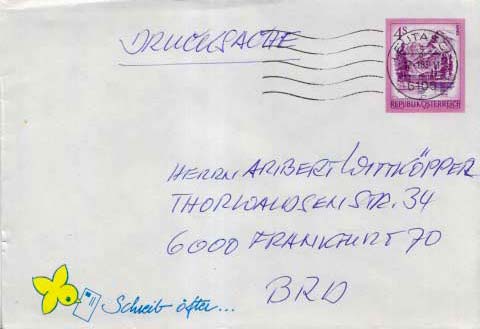 DRUCKSACHE
4s
6105
REPUBLIK ÖSTERREICH
HERRN ARIBERT WITTKÖPPER
THORWALDSENSTR. 34
6000 FRANKFURT 70
BRD
Schreib öfter...